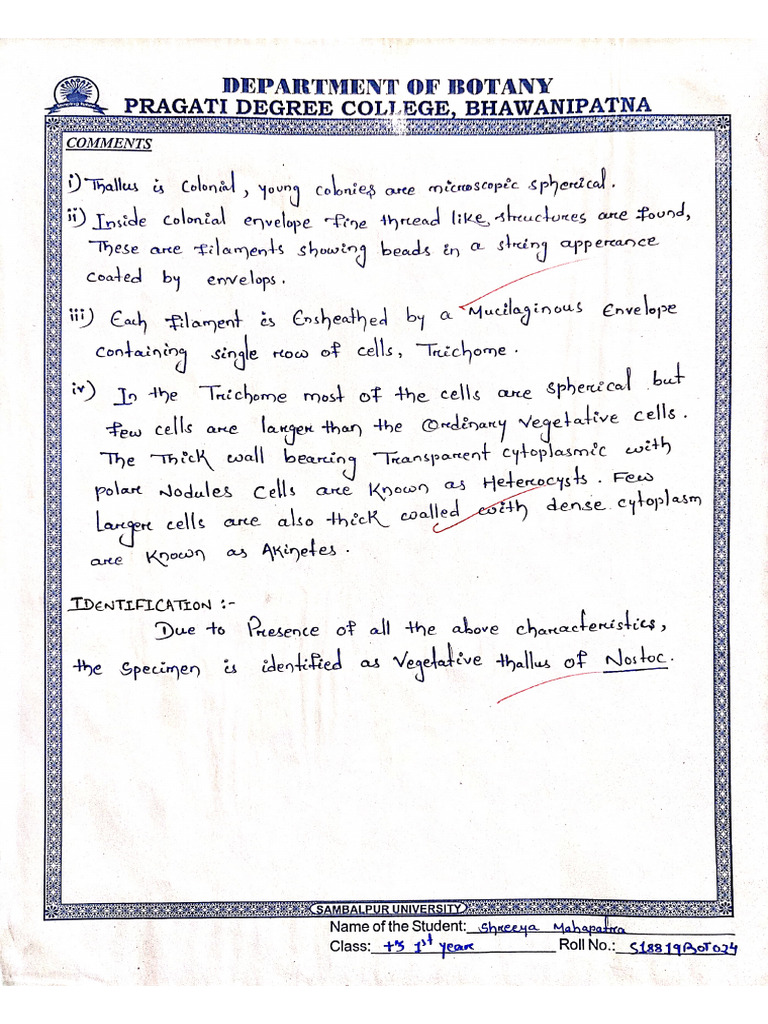 DEPARTMENT OF BOTANY
PRAGATI DEGREE COLLEGE, BHAWANIPATNA
COMMENTS
i) Thallus is colonial, young colonies are microscopic spherical.
ii) Inside colonial envelope fine thread like structures are found,
These are filaments showing beads in a string apperance
coated by envelops.
iii) Each filament is Ensheathed by a Mucilaginous Envelope
containing single row of cells, Trichome.
iv) In the Trichome most of the cells are spherical but
few cells are larger than the Ordinary vegetative cells.
The Thick wall bearing Transparent cytoplasmic with
polar Nodules Cells are Known as Heterocysts. Few
Larger cells are also thick walled with dense cytoplasm
are Known as Akinetes.
IDENTIFICATION :-
Due to Presence of all the above characteristics,
the Specimen is identified as Vegetative thallus of Nostoc.
SAMBALPUR UNIVERSITY
Name of the Student: Shreeya Mahapatra
Class: +3 1st year Roll No.: S18819BOT024